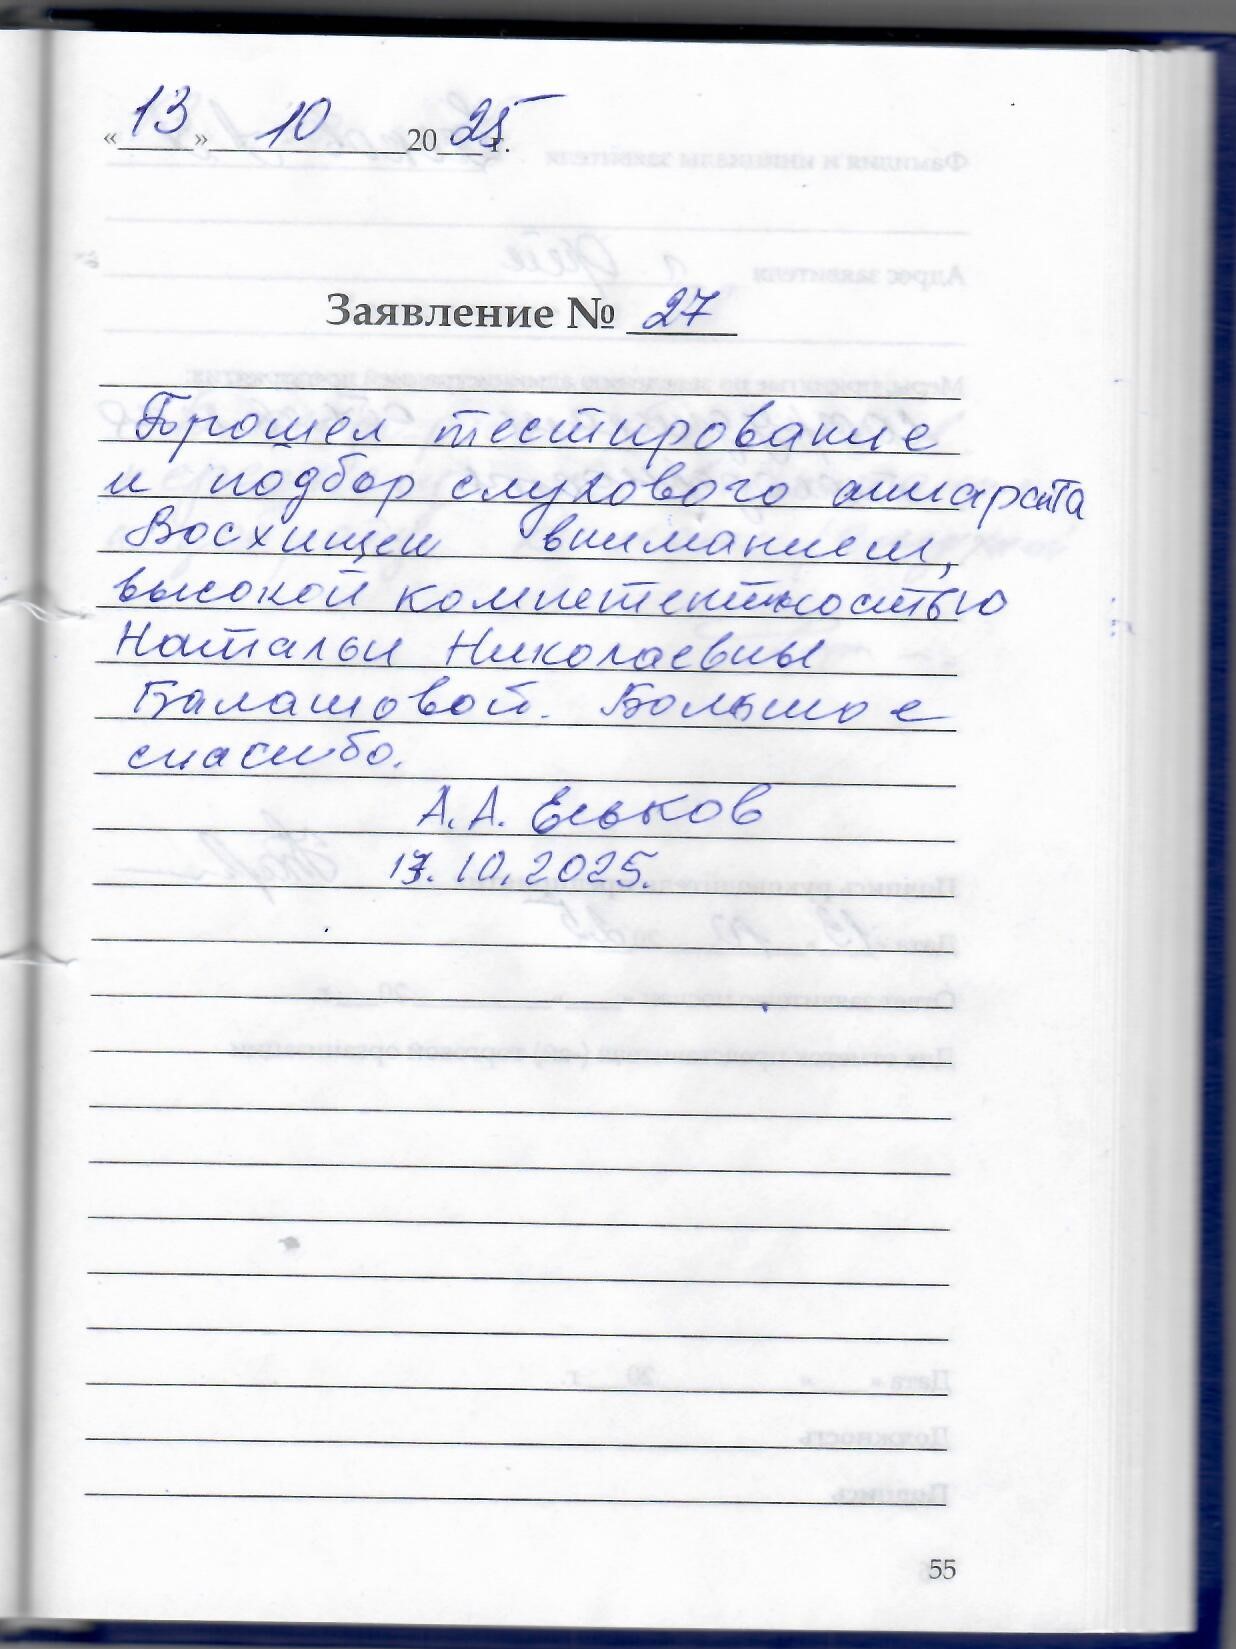 «13» 10 2025 г.
Заявление № 27
Прошел тестирование
и подбор слухового аппарата
Восхищен вниманием,
высокой компетентностью
Натальи Николаевны
Балашовой. Большое
спасибо.
А.А. Ельков
13.10.2025.
55